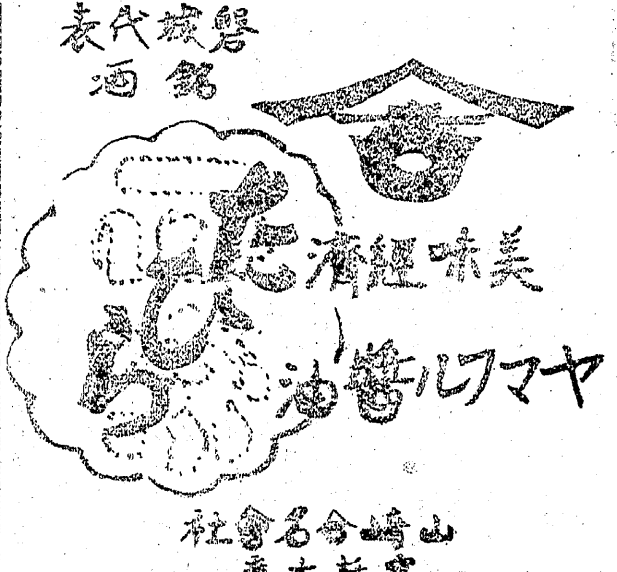 磐城代表
銘酒
たひら
美味經濟
ヤマフル醬油
山崎合名會社